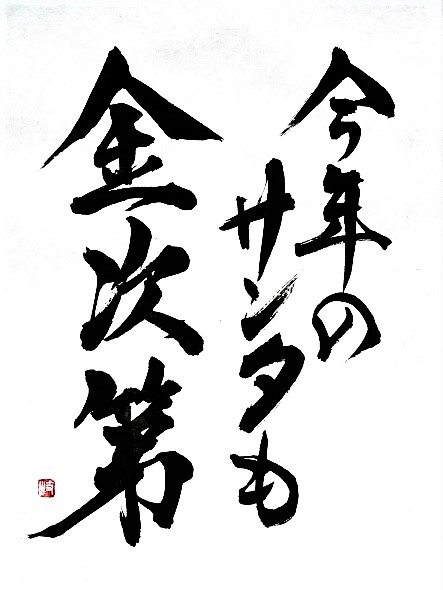 今年の
サンタも
金次第